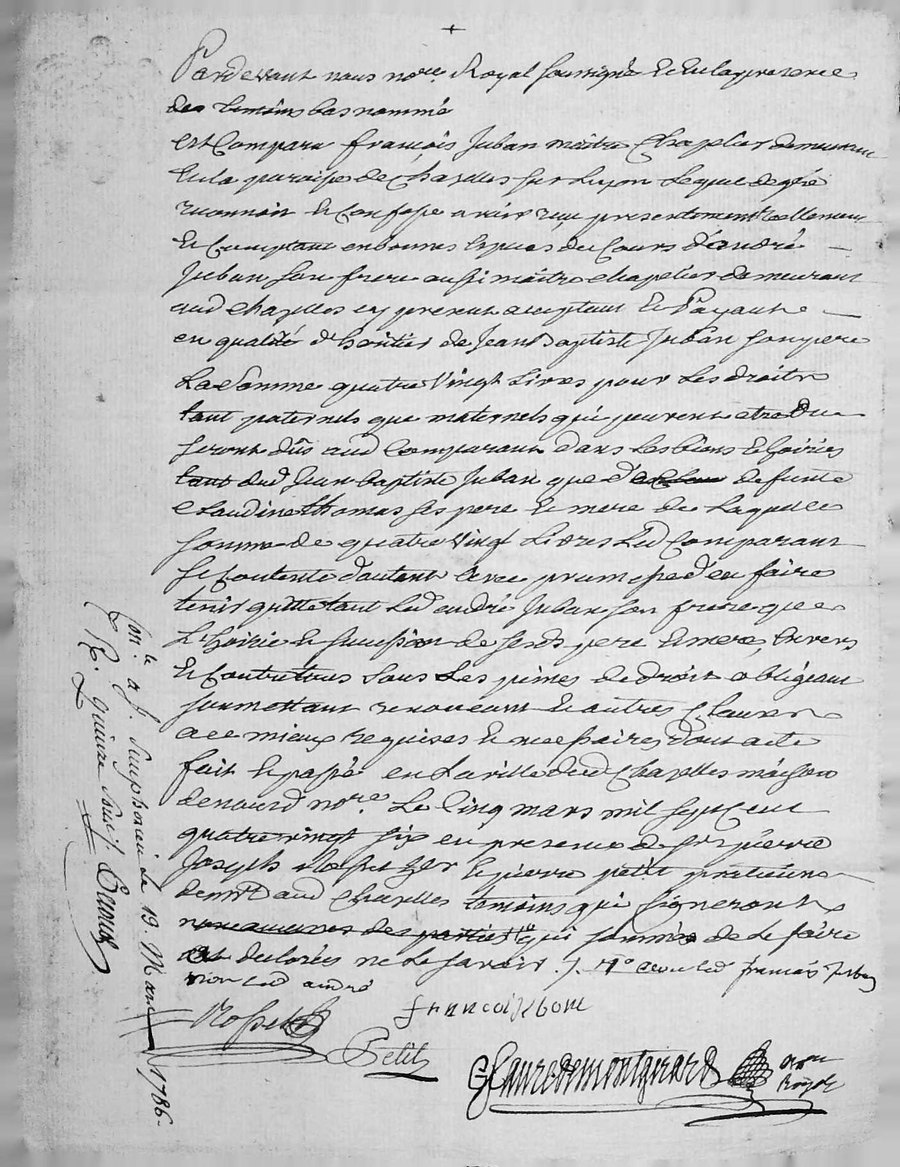 Pardevant nous no.re Royal soussigné et en la presence
des temoins bas nommé
est Comparu françois Juban maitre Chapelier demeurant
en la paroisse de Chazelles sur Lyon Lequel de gré
reconnoit et Confesse avoir reçu presentement reellement
et Comptant en bonnes Espèces du Cours d'andré
Juban son frere aussi maitre chapelier demeurant
aud chazelles icy present acceptant et Payant
en qualité d'heritier de Jean Baptiste Juban son pere
La Somme quatre Vingt Livres pour les droits
tant paternels que maternels qui peuvent etre du
seront dûs aud Comparant dans les biens et hoiries
tant dud Jean baptiste Juban que d' defunte
Claudine Thomas ses pere et mere de Laquelle
somme de quatre Vingt Livres Led Comparant
se contente d'autant avec promesse d'en faire
tenir quitte tant Led andré Juban son frere que
L'hoirie et succession de sesds pere et mere, Envers
et Contre tous Sous Les peines de droit obligeant
soumettant renonceant et autres Clauses
a ce mieux requises et necessaires dont acte
fait et passé en La ville dud Chazelles maison
de nousd no.re Le Cinq mars mil sept cent
quatre vingt six en presence de s.r pierre
Joseph et pierre petit praticiens
dem.t aud Chazelles temoins qui signeront
qui sommés de Le faire
ont declarés ne Le savoir . /. led francois Juban
non Led andré
Rosset
francois Jubane
Petit
GFauredemontgirard no.re Royal
Con.lé a S. Simphorien Le 19. Mars 1786.
R. quinze sous